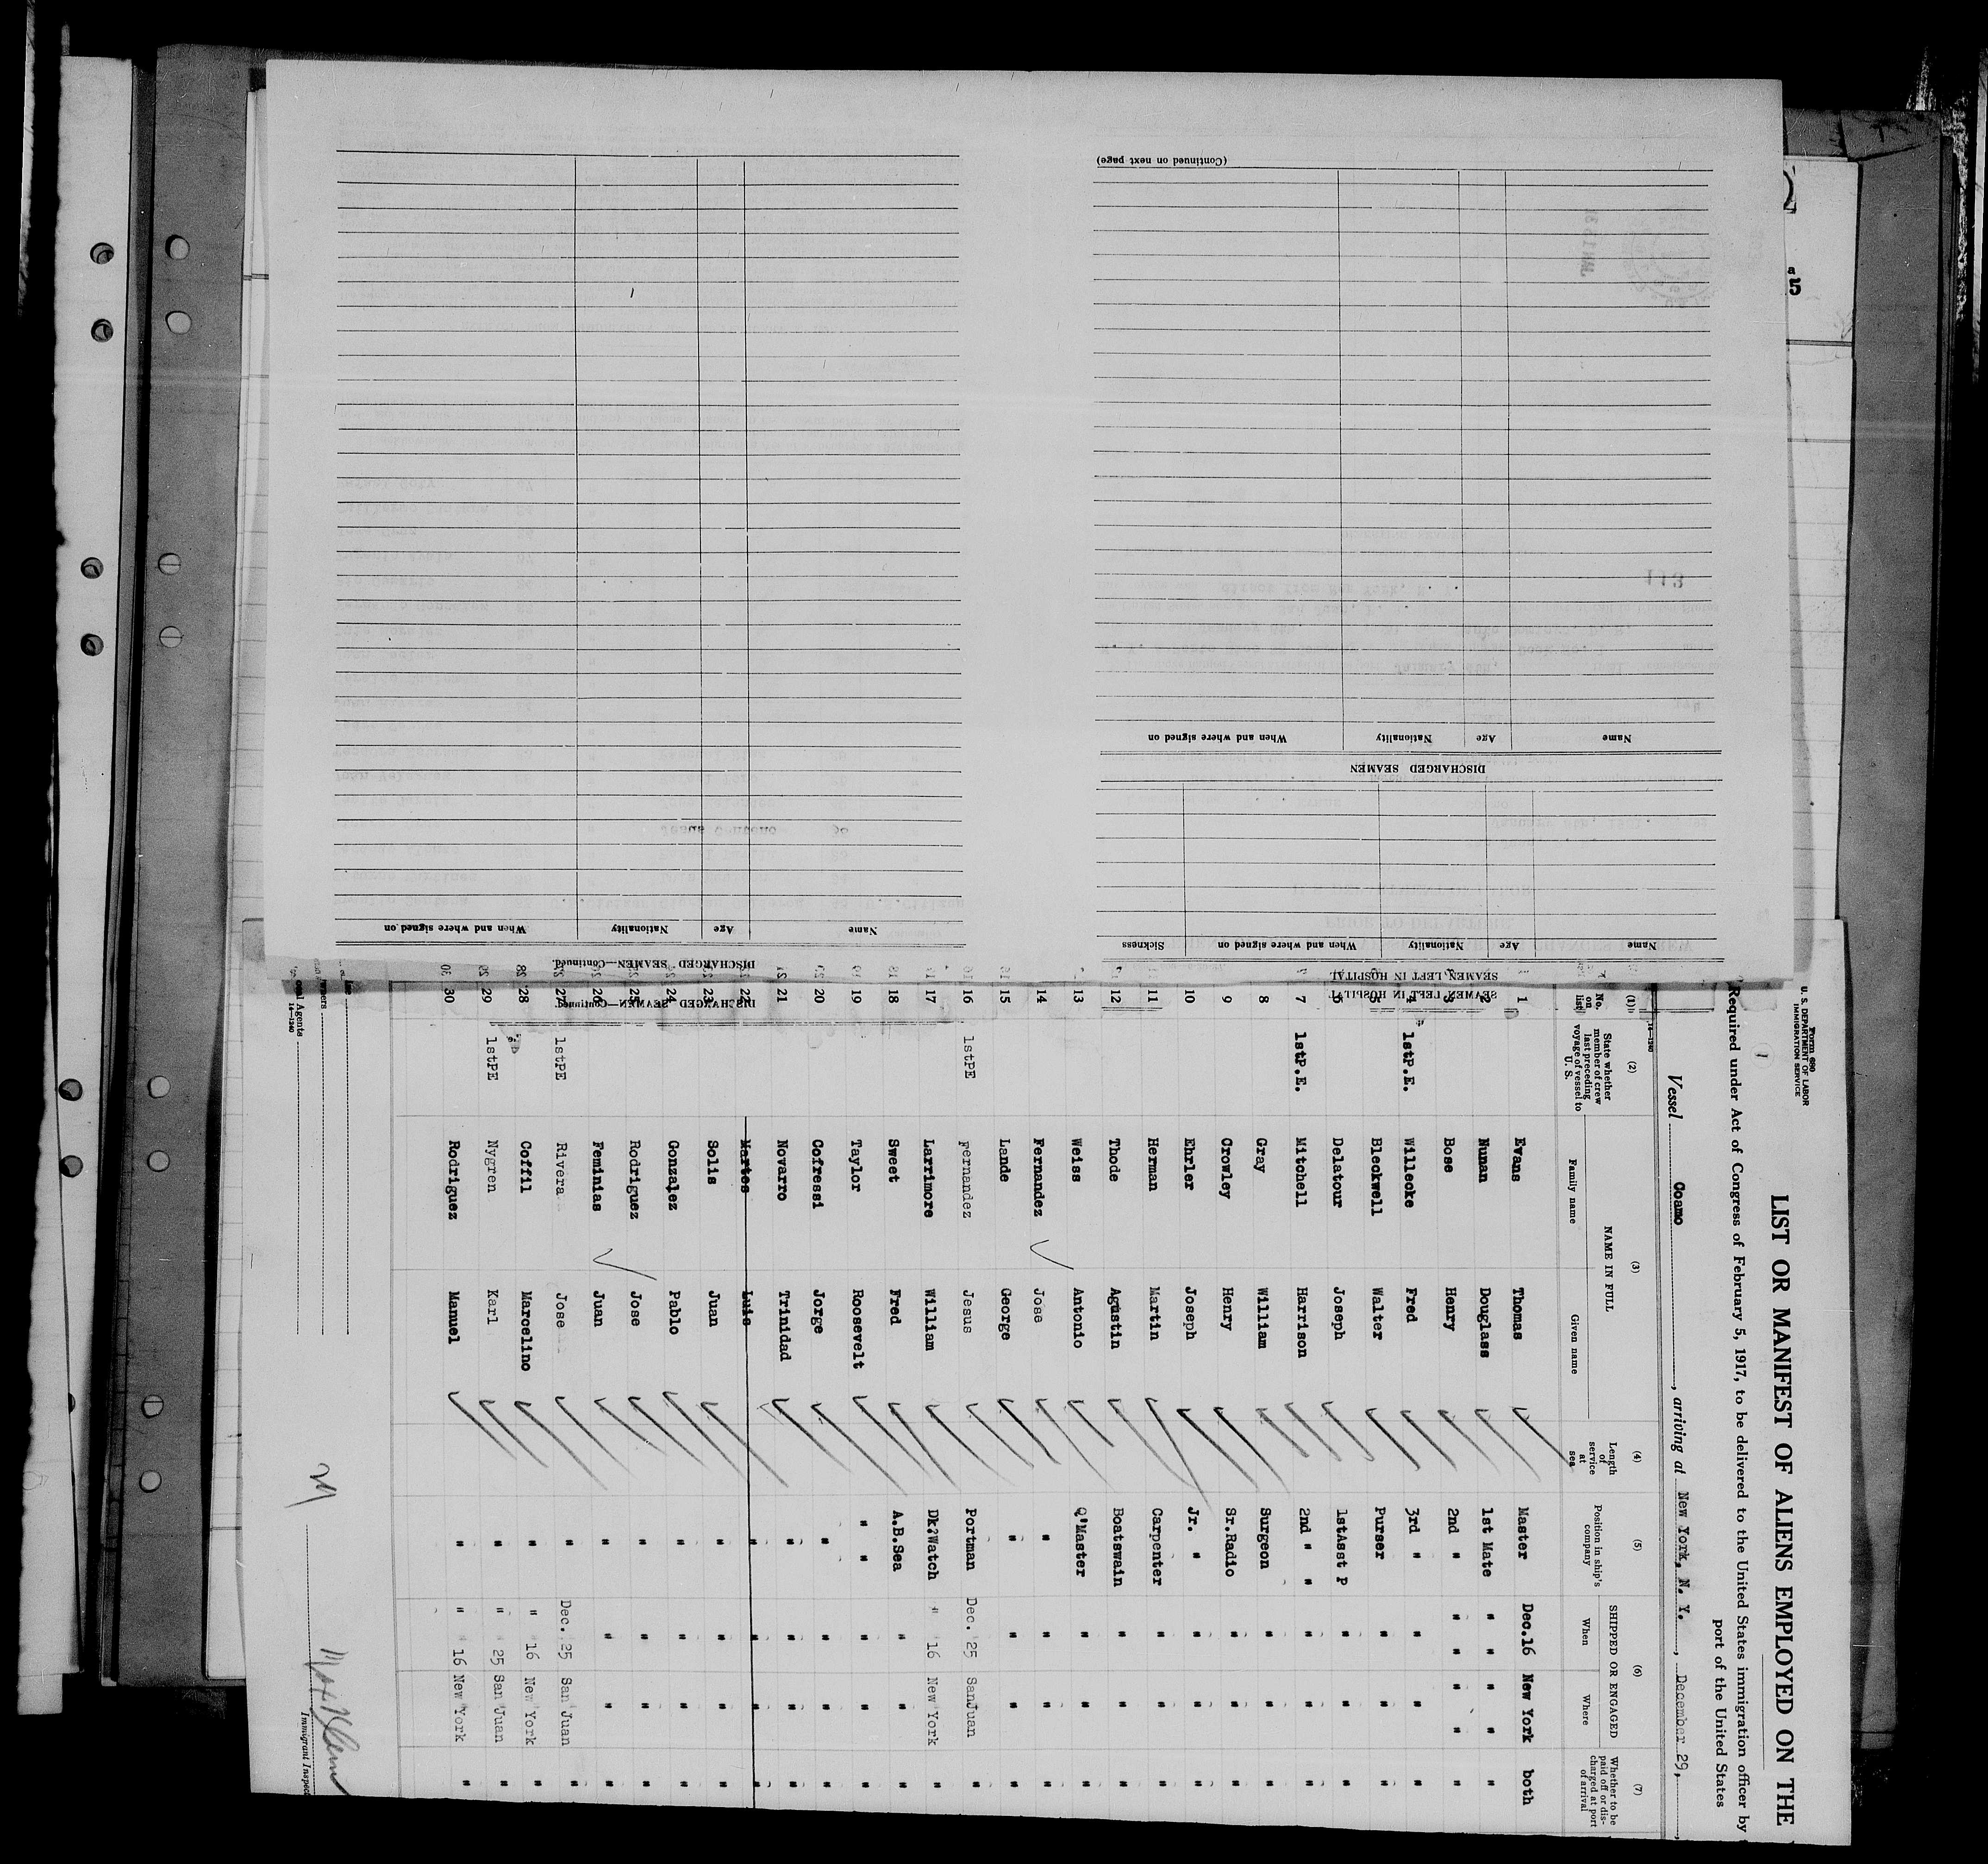 (Continued on next page)
Name Age Nationality When and where signed on
DISCHARGED SEAMEN
Name Age Nationality When and where signed on Sickness
SEAMEN LEFT IN HOSPITAL
SEAMEN LEFT IN HOSPITAL
Name Age Nationality When and where signed on
DISCHARGED SEAMEN—Continued
DISCHARGED SEAMEN—Continued
113
Form 680
U. S. DEPARTMENT OF LABOR
IMMIGRATION SERVICE
LIST OR MANIFEST OF ALIENS EMPLOYED ON THE
Required under Act of Congress of February 5, 1917, to be delivered to the United States immigration officer by
port of the United States
Vessel Coamo, arriving at New York, N. Y., December 29,
(1) (2) (3) (4) (5) (6) (7)
No. on list
State whether member of crew last preceding voyage of vessel to U. S.
NAME IN FULL
Family name Given name
Length of service at sea
Position in ship's company
SHIPPED OR ENGAGED
When Where
Whether to be paid off or discharged at port of arrival
1 Evans Thomas Master Dec.16 New York both
2 Nunan Douglass 1st Mate " " " " "
3 Bose Henry 2nd " " " " " "
4 1stP.E. Willecke Fred 3rd " " " "
5 Bleckwell Walter Purser " " "
6 Delatour Joseph 1stAsst P " " "
7 1stP.E. Mitchell Harrison 2nd " " " " "
8 Gray William Surgeon " " "
9 Crowley Henry Sr.Radio " " "
10 Ehrler Joseph Jr. " " " "
11 Herman Martin Carpenter " " "
12 Thode Agustin Boatswain " " "
13 Weiss Antonio Q'Master " " "
14 Fernandez Jose " " " "
15 Lande George " " " "
16 1stPE Fernandez Jesus Portman Dec. 25 SanJuan "
17 Larrimore William Dk?Watch " 16 New York "
18 Sweet Fred A.B.Sea " " "
19 Taylor Roosevelt " " " " "
20 Cofressi Jorge " " " "
21 Novarro Trinidad " " " "
22 Martes Luis " " " "
23 Solis Juan " " " "
24 Gonzalez Pablo " " " "
25 Rodriguez Jose " " " "
26 Feminias Juan " " " "
27 1stPE Rivera Jose " Dec. 25 San Juan "
28 Coffil Marcelino " " 16 New York "
29 1stPE Nygren Karl " " 25 San Juan "
30 Rodriguez Manuel " " 16 New York "
Immigrant Inspec
14—1240